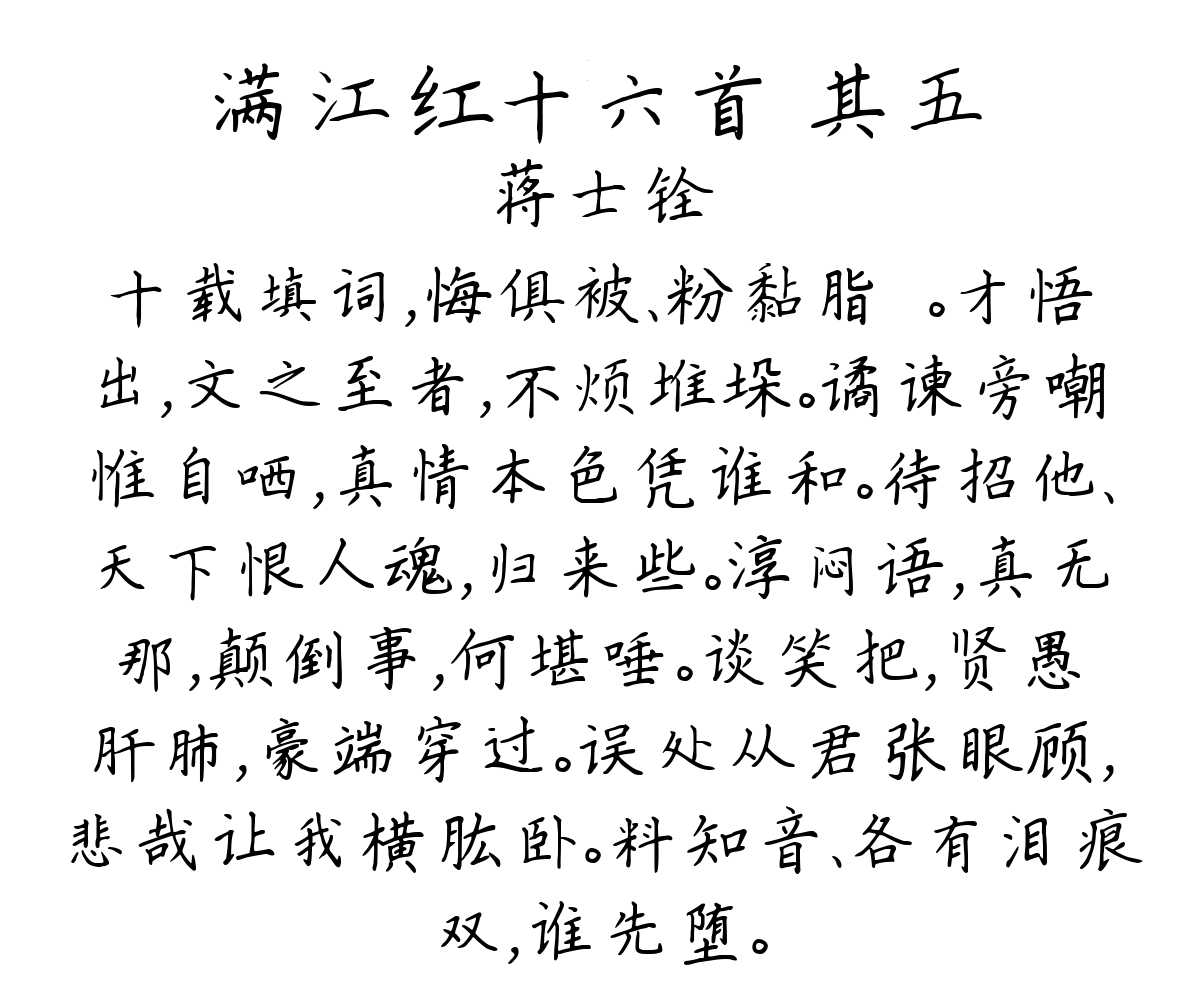 满江红十六首 其五
蒋士铨
十载填词,悔俱被、粉黏脂 。才悟
出,文之至者,不烦堆垛。谲谏旁嘲
惟自哂,真情本色凭谁和。待招他、
天下恨人魂,归来些。淳闷语,真无
那,颠倒事,何堪唾。谈笑把,贤愚
肝肺,豪端穿过。误处从君张眼顾,
悲哉让我横肱卧。料知音、各有泪痕
双,谁先堕。